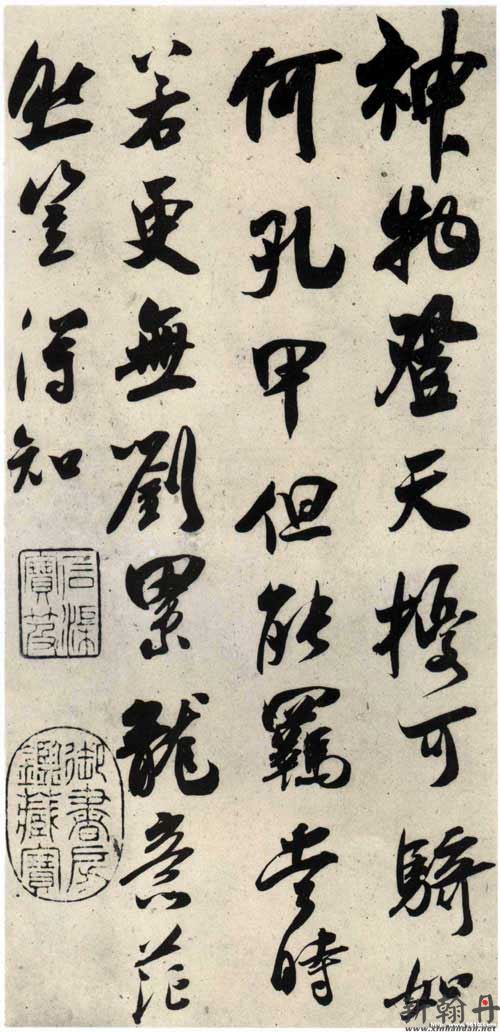 神物登天擾可騎如
何孔甲但能羈當時
若更無劉累龍意茫
然豈得知
石渠寶笈
御書房鑑藏寶
新翰丹
www.xinhandan.net